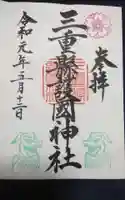 奉拝
三重縣護國神社
令和元年五月十二日